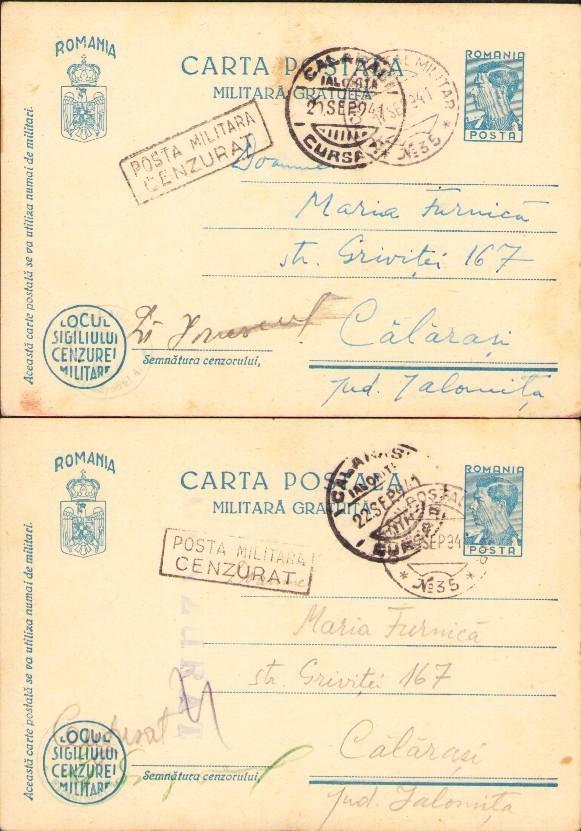 ROMANIA
CARTA POSTALĂ
MILITARĂ GRATUITĂ
ROMANIA
POSTA
CALARASI
IALOMITA
21 SEP 941
CURSA
MILITAR
SEP 941
* № 35 *
POSTA MILITARA
CENZURAT
Doamnei
Maria Furnică
str. Griviței 167
Călărași
jud. Ialomița
LOCUL
SIGILIULUI
CENZUREI
MILITARE
Semnătura cenzorului,
Această carte postală se va utiliza numai de militari.
ROMANIA
CARTA POSTALĂ
MILITARĂ GRATUITĂ
ROMANIA
POSTA
CALARASI
IALOMITA
22 SEP 941
CURSA
POSTAL
SEP 94
* № 35 *
POSTA MILITARA
CENZURAT
Maria Furnică
str. Griviței 167
Călărași
jud. Ialomița
Cenzurat
LOCUL
SIGILIULUI
CENZUREI
MILITARE
Semnătura cenzorului,
Această carte postală se va utiliza numai de militari.